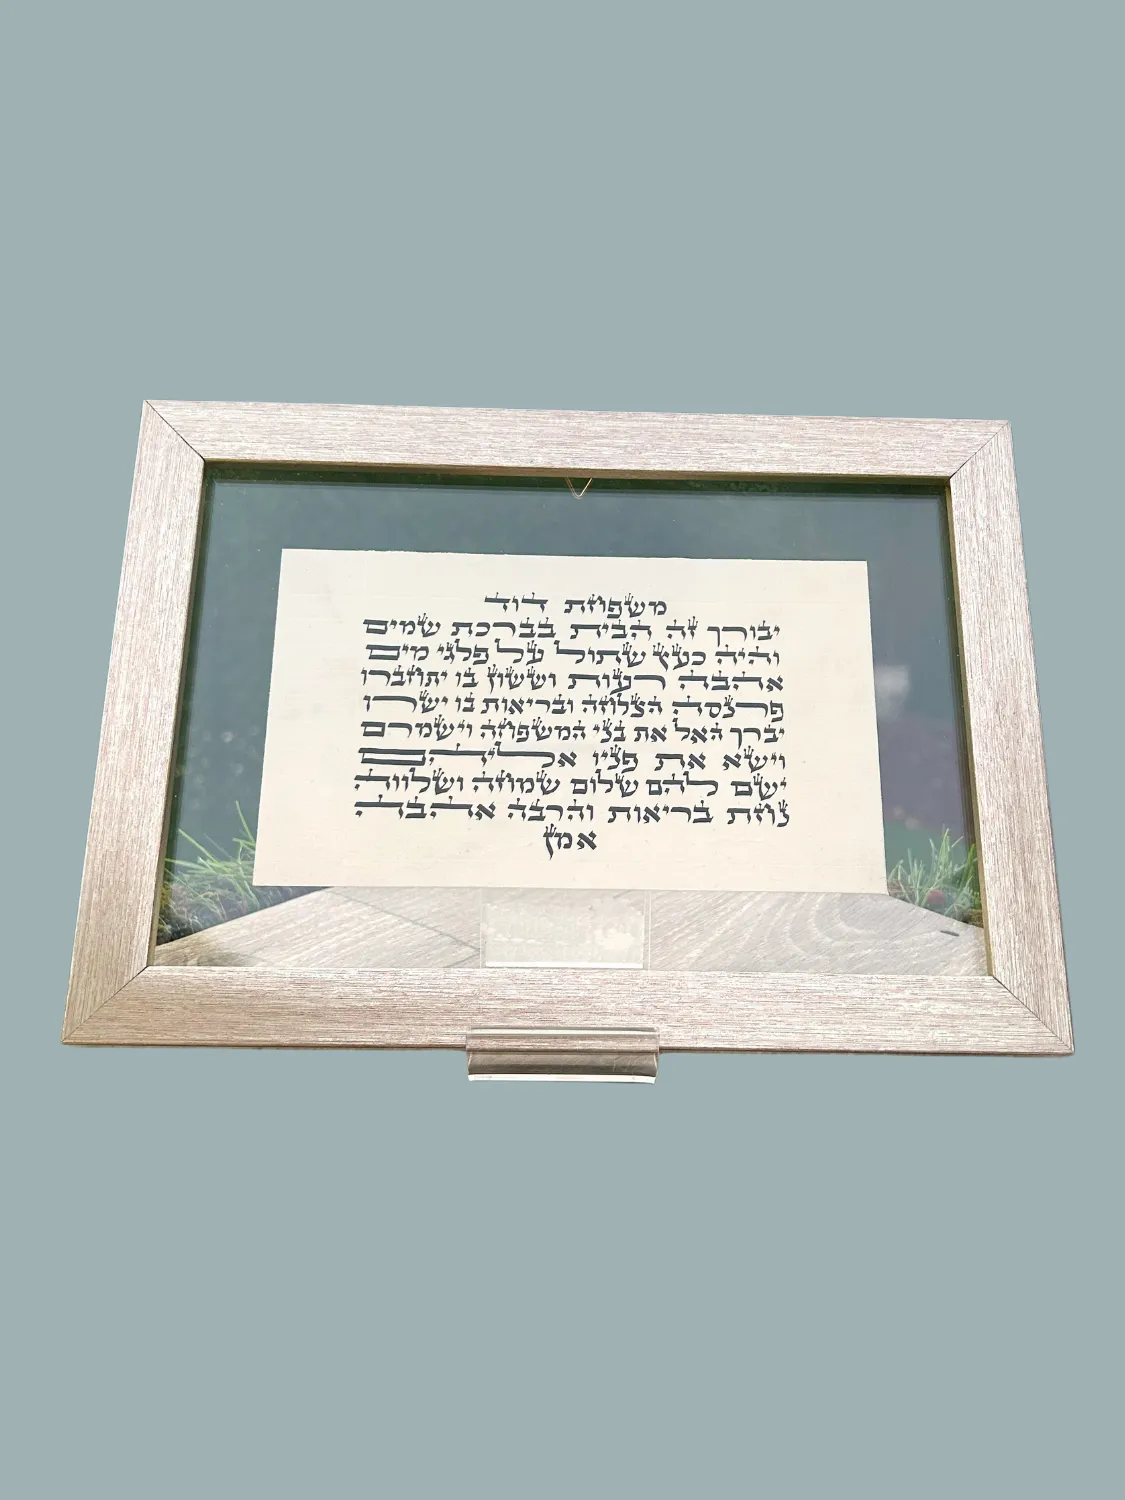 משפחת דוד
יבורך זה הבית בברכת שמים
והיה כעץ שתול על פלגי מים
אהבה רעות וששון בו יתחברו
פרנסה הצלחה ובריאות בו ישרו
יברך האל את בני המשפחה וישמרם
וישא את פניו אליהם
ישם להם שלום שמחה ושלווה
נחת בריאות והרבה אהבה
אמן